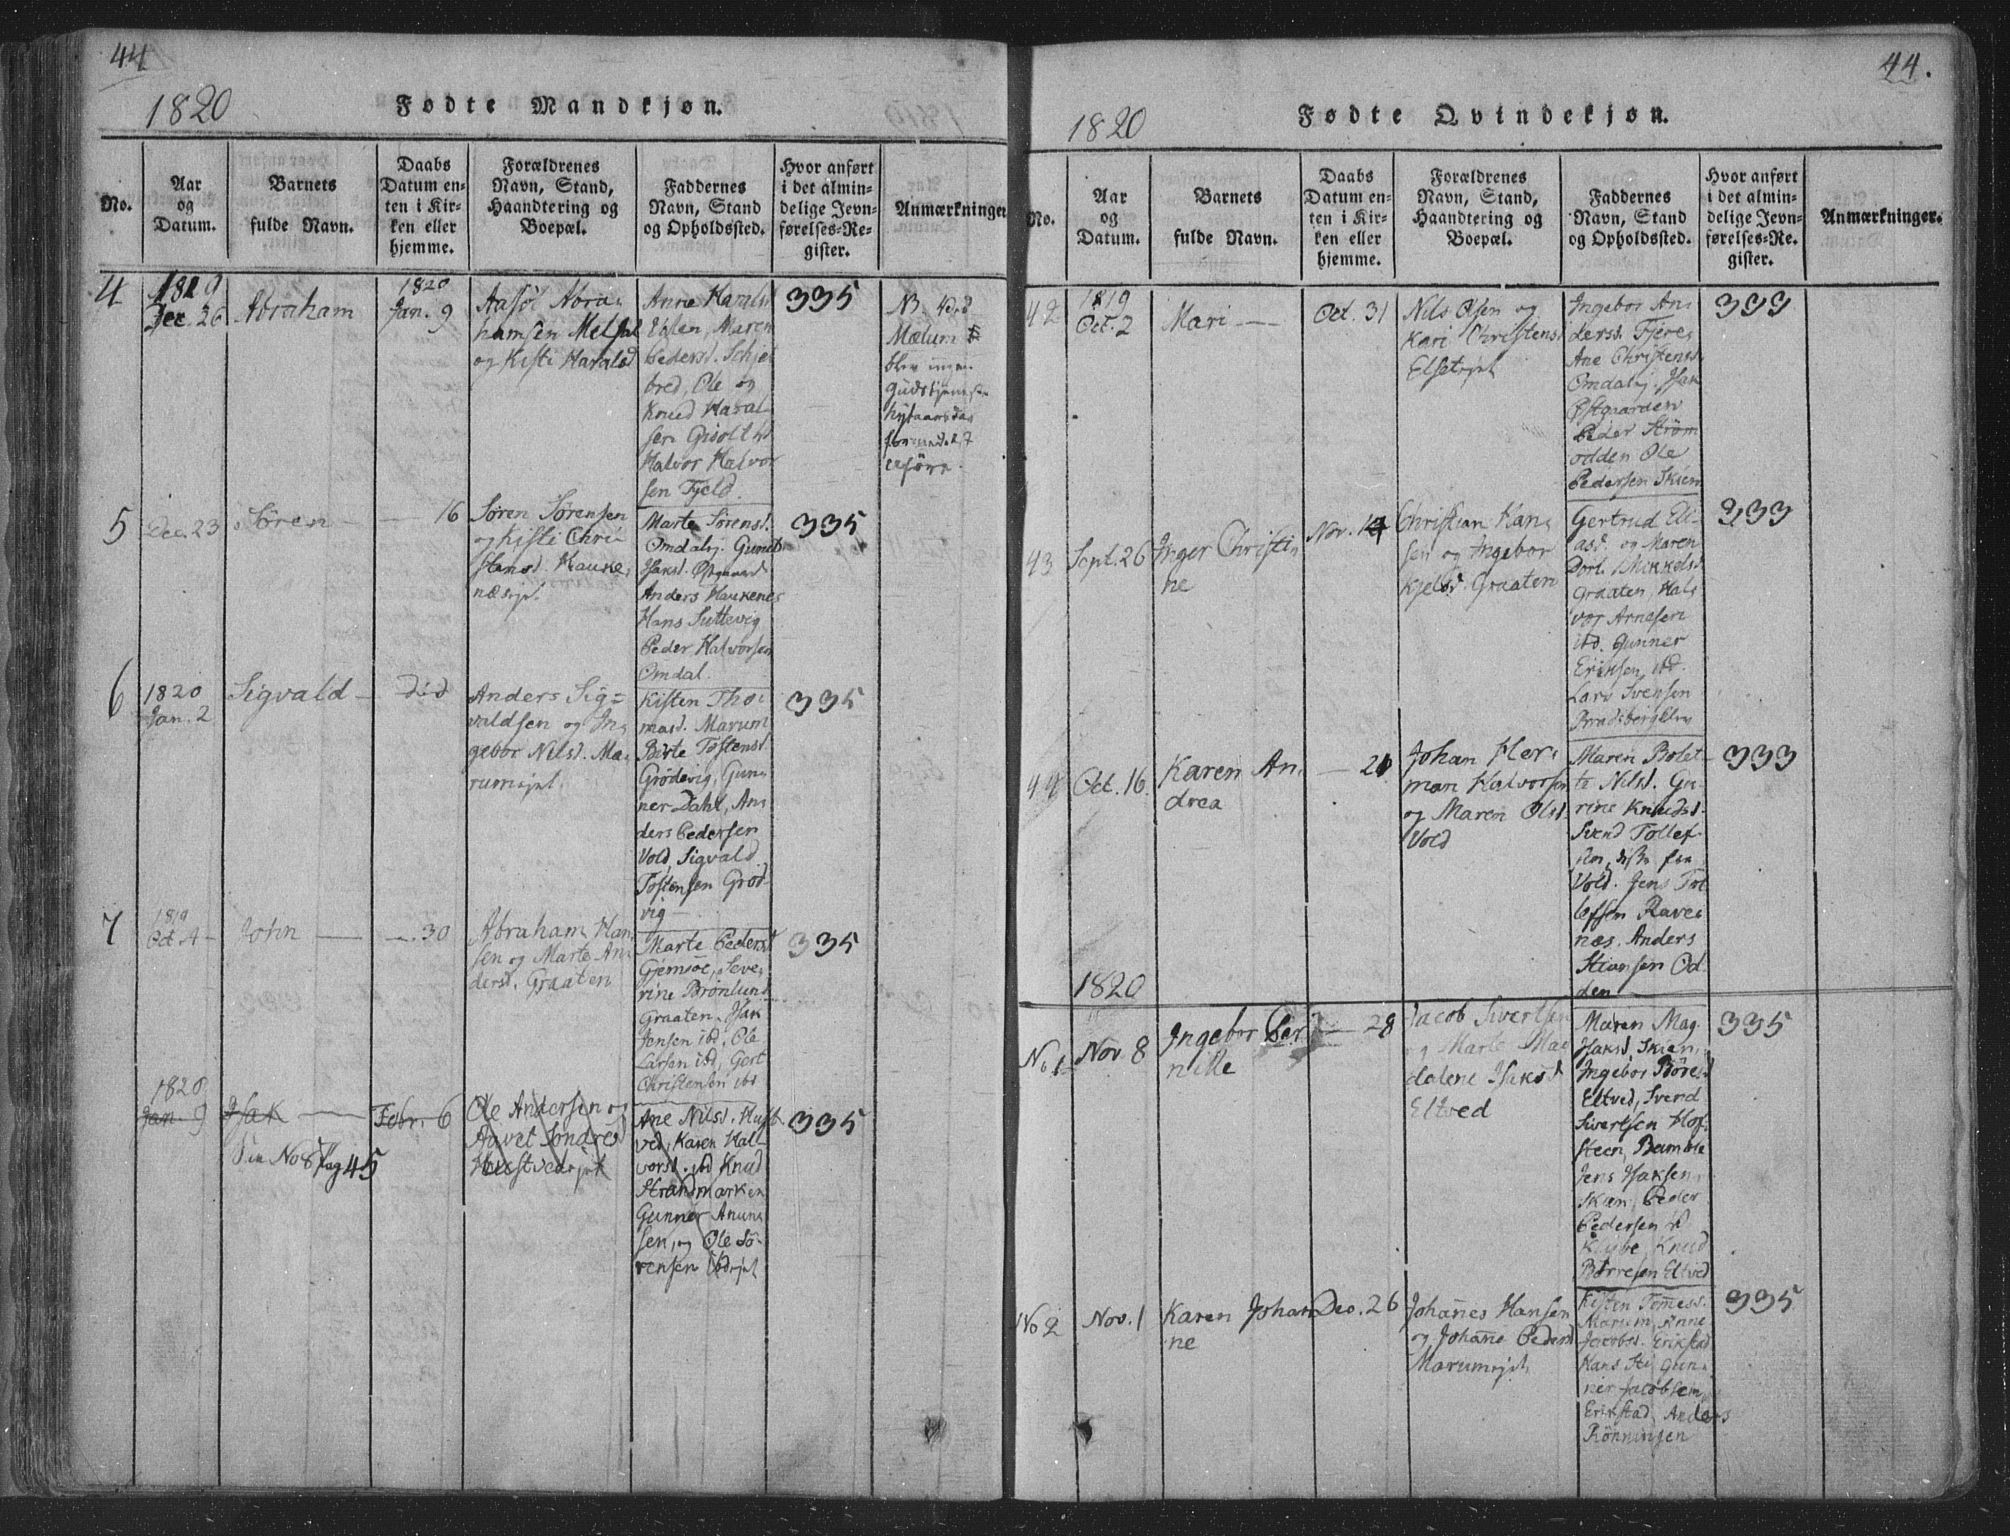 44
1820
Fødte Mandkjøn.
No.
Aar
og
Datum.
Barnets
fulde Navn.
Daabs
Datum en-
ten i Kir-
ken eller
hjemme.
Forældrenes
Navn, Stand,
Haandtering og
Boepæl.
Faddernes
Navn, Stand
og Opholdssted.
Hvor anført
i det almin-
delige Jevn-
førelses-Re-
gister.
Anmærkninger
4
1819
Dec. 26
Abraham
1820
Jan. 9
Aasol Abra-
hamsen
og Kisti Haralsd
Anne Haralsd
Maren
Pedersd.
Ole og
Knud Haral-
sen
Halvor Halvor
sen Fjeld.
335
NB.
Mælum
blev ingen
5
Dec. 23
Søren
16
Søren Sørensen
og Kisti Chri-
stensd. Hauke-
næsejet
Marte Sørensd.
Omdalej. Gunel
Isaksd. Østgaard
Anders Haukenes
Hans Suttevig
Peder Halvorsen
Omdal.
335
6
1820
Jan. 2
Sigvald
Did
Anders Sig=
valdsen og In-
gebor Nilsd. Ma-
rumejet.
Kisten Tho-
masd. Marum
Birte Tostensd.
Grødevig, Gun-
ner Dahl, An-
ders Pedersen
Vold, Sigvald
Tostensen Grød-
vig
335
7
1819
Oct. 4
John
30
Abraham Han-
sen og Marte An-
dersd. Graaten
Marte Pedersd
Gjemsøe, Seve-
rine Brønlund
Graaten, Isak
Jensen ibd, Ole
Larsen ibd, Gert
Christensen ibd
335
1820
Jan. 9
Isak
Febr. 6
Ole Andersen og
Aavet Sondresd
Hustvedejet
Ane Nilsd. Hust-
ved, Karen Hal-
vorsd. ibd Knud
Strandmarken
Gunner Anun-
sen, og Ole Sö-
rensen ibdejet
335
No 8 Pag 45
44.
1820
Fødte Qvindekjøn.
No.
Aar
og
Datum.
Barnets
fulde Navn.
Daabs
Datum en-
ten i Kir-
ken eller
hjemme.
Forældrenes
Navn, Stand,
Haandtering og
Boepæl.
Faddernes
Navn, Stand
og Opholdssted.
Hvor anført
i det almin-
delige Jevn-
førelses-Re-
gister.
Anmærkninger.
42
1819
Oct. 2
Mari
Oct. 31
Nils Olsen og
Kari Christensd
Elsetejet
Ingebor An-
dersd. Fjere-
Ane Christensd
Omdalej. Isak
Østgaarden
Peder Strøm-
odden Ole
Pedersen Skien
333
43
Sept. 26
Inger Christi-
ne
Nov. 14
Christian Han-
sen og Ingebor
Kjelsd. Graaten
Gertrud Eli-
asd. og Maren
Dort. Mikkelsd
Graaten, Hal-
vor Arnesen
ibd. Gunner
Eriksen, ibd.
Lars Svensen
333
44
Oct. 16
Karen An-
drea
21
Johan Her-
man Halvorsen
og Maren Olsd.
Vold
Maren Bolet-
te Nilsd. Gu-
rine Knudsd
Svend Tollef-
sen, disse fra
Vold. Jens Tol-
lefsen Ravne-
næs. Anders
Od-
den
333
1820
No 1
Nov. 8
Ingebor Per-
nille
28
Jacob Sivertsen
og Marte Mag-
dalene Isaksd
Eltved
Maren Mag.
Isaksd. Skien,
Ingebor Böresd
Eltved, Svend
Sivertsen Hof-
steen, Bamble
Jens Isaksen,
Skien, Peder
Pedersen
Knud
Börresen Eltved
335
No 2
Nov. 1
Karen Johan-
ne
Dec. 26
Johannes Hansen
og Johanne Pedersd
Marumejet
Kisten Tomessd.
Marum, Anne
Jacobsd. Erikstad
Hans Sti, Gun-
ner Jacobsen
Erikstad, Anders
Rönningen
335